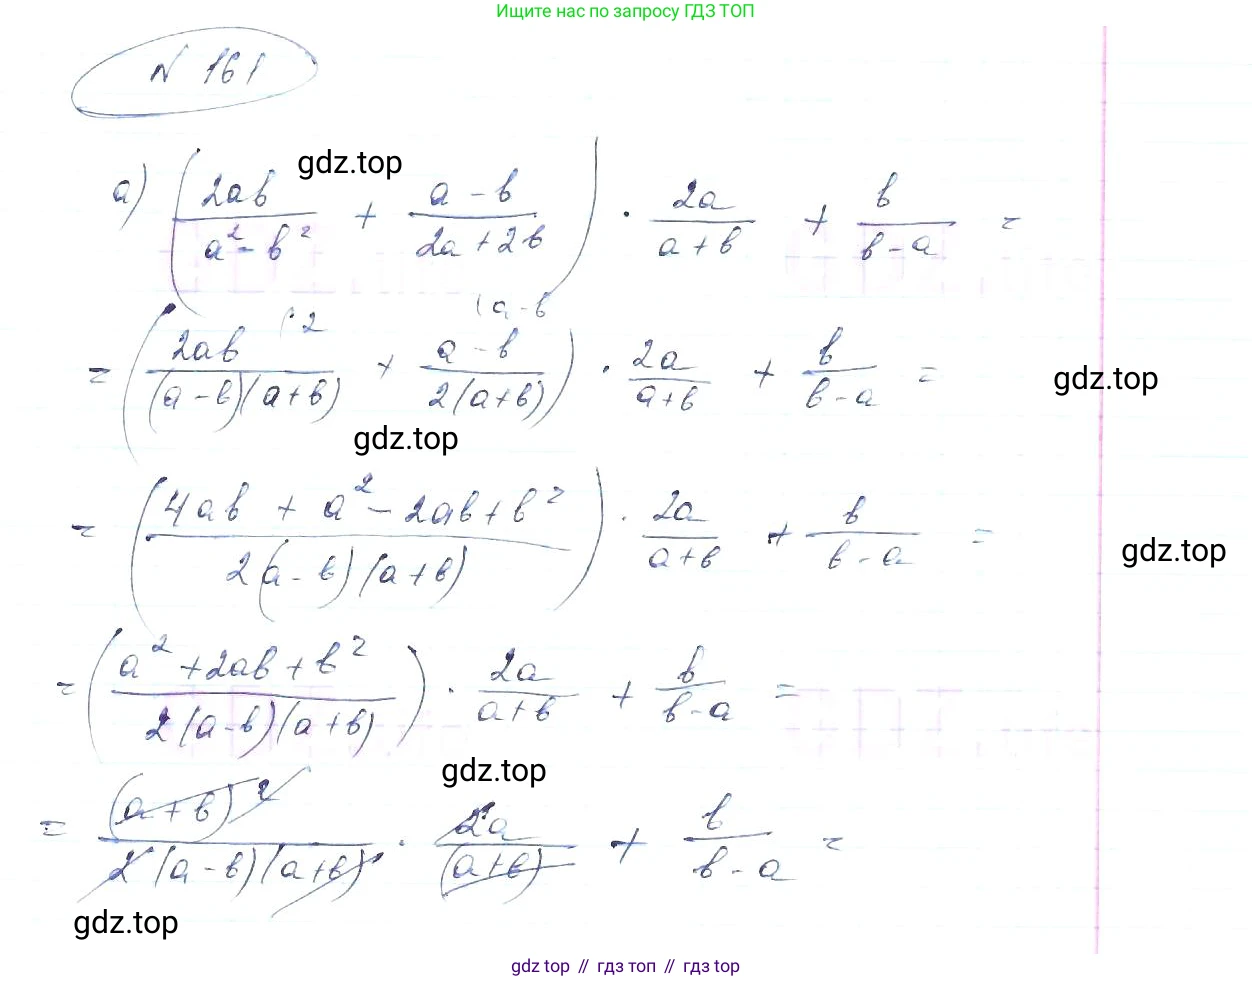 Ищите нас по запросу ГДЗ ТОП
N 161
gdz.top
а) (2ab/(a² - b²) + (a - b)/(2a + 2b)) · 2a/(a + b) + b/(b - a) =
= (2ab/((a - b)(a + b)) (·2 + (a - b)/(2(a + b)) (a - b) · 2a/(a + b) + b/(b - a) =
gdz.top
gdz.top
= ((4ab + a² - 2ab + b²)/(2(a - b)(a + b))) · 2a/(a + b) + b/(b - a) =
gdz.top
= ((a² + 2ab + b²)/(2(a - b)(a + b))) · 2a/(a + b) + b/(b - a) =
gdz.top
= (a + b)²/(2(a - b)(a + b)) · 2a/(a + b) + b/(b - a) =
gdz.top
gdz top // гдз топ // гдз top